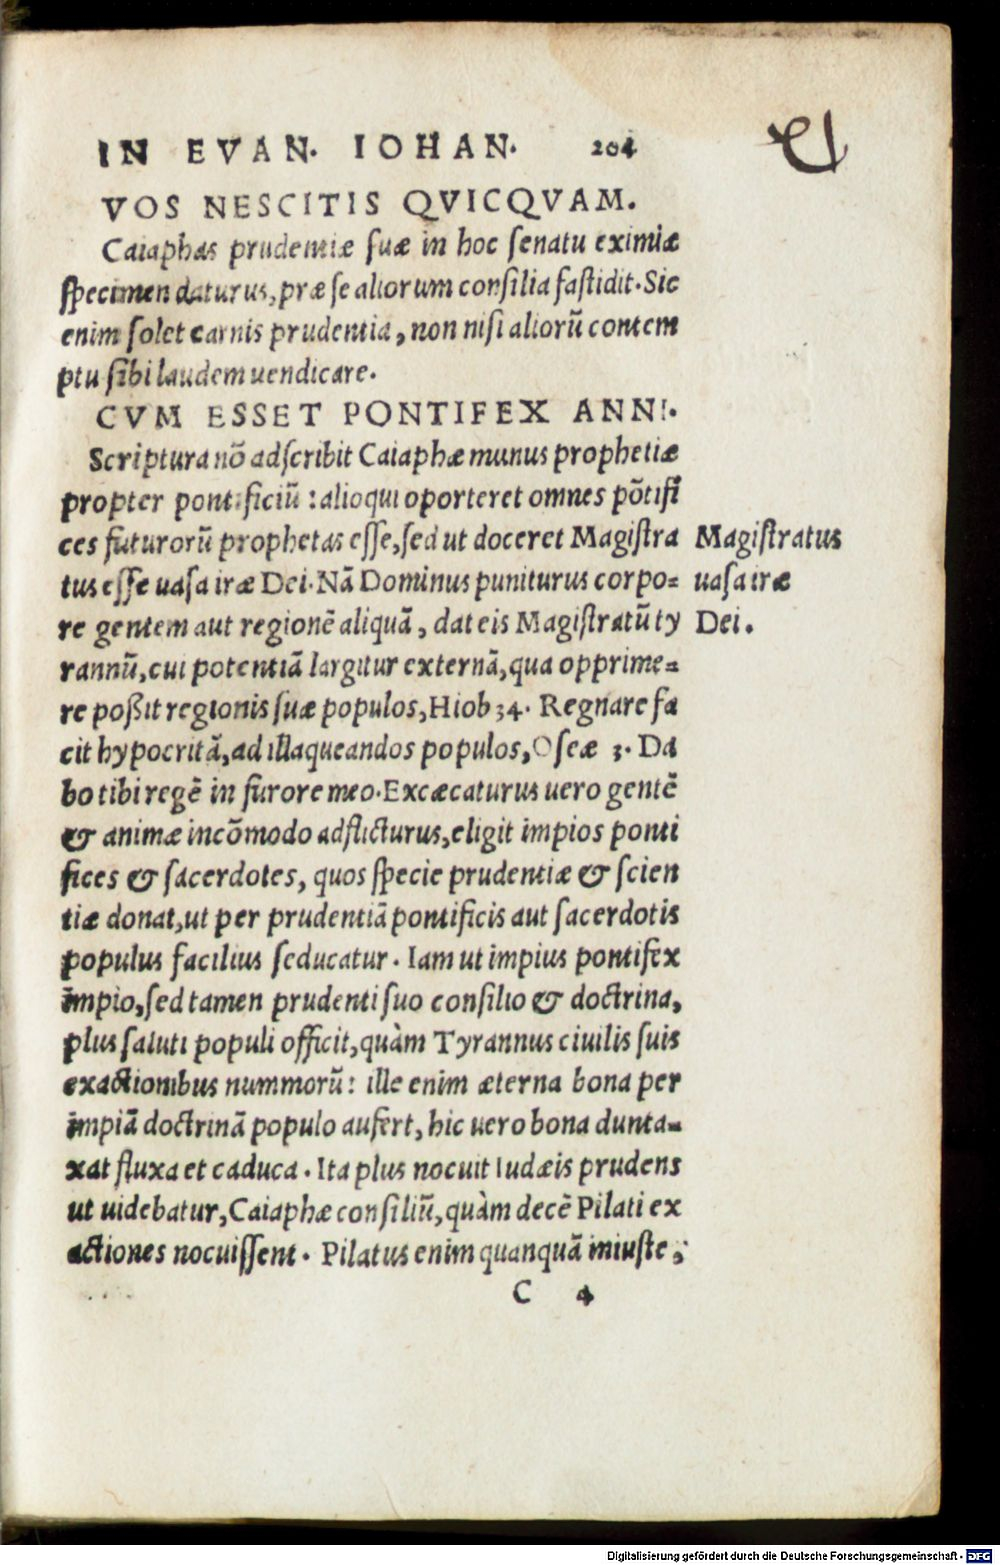 IN EVAN. IOHAN. 204
VOS NESCITIS QVICQVAM.
Caiaphas prudentiæ suæ in hoc senatu eximiæ
specimen daturus, præ se aliorum consilia fastidit. Sic
enim solet carnis prudentia, non nisi aliorū contem
ptu sibi laudem uendicare.
CVM ESSET PONTIFEX ANNI.
Scriptura nō adscribit Caiaphæ munus prophetiæ
propter pontificiū: alioqui oporteret omnes pōtifi
ces futurorū prophetas esse, sed ut doceret Magistra
tus esse uasa iræ Dei. Nā Dominus puniturus corpo-
re gentem aut regionē aliquā, dat eis Magistratū ty
rannū, cui potentiā largitur externā, qua opprime-
re poßit regionis suæ populos, Hiob 34. Regnare fa
cit hypocritā, ad illaqueandos populos, Oseæ 3. Da
bo tibi regē in furore meo. Excæcaturus uero gentē
& animæ incōmodo adflicturus, eligit impios ponti
fices & sacerdotes, quos specie prudentiæ & scien
tiæ donat, ut per prudentiā pontificis aut sacerdotis
populus facilius seducatur. Iam ut impius pontifex
impio, sed tamen prudenti suo consilio & doctrina,
plus saluti populi officit, quàm Tyrannus ciuilis suis
exactionibus nummorū: ille enim æterna bona per
impiā doctrinā populo aufert, hic uero bona dunta-
xat fluxa et caduca. Ita plus nocuit Iudæis prudens
ut uidebatur, Caiaphæ consiliū, quàm decē Pilati ex
actiones nocuissent. Pilatus enim quanquā iniuste,
C 4
Magistratus
uasa iræ
Dei.
Digitalisierung gefördert durch die Deutsche Forschungsgemeinschaft - DFG